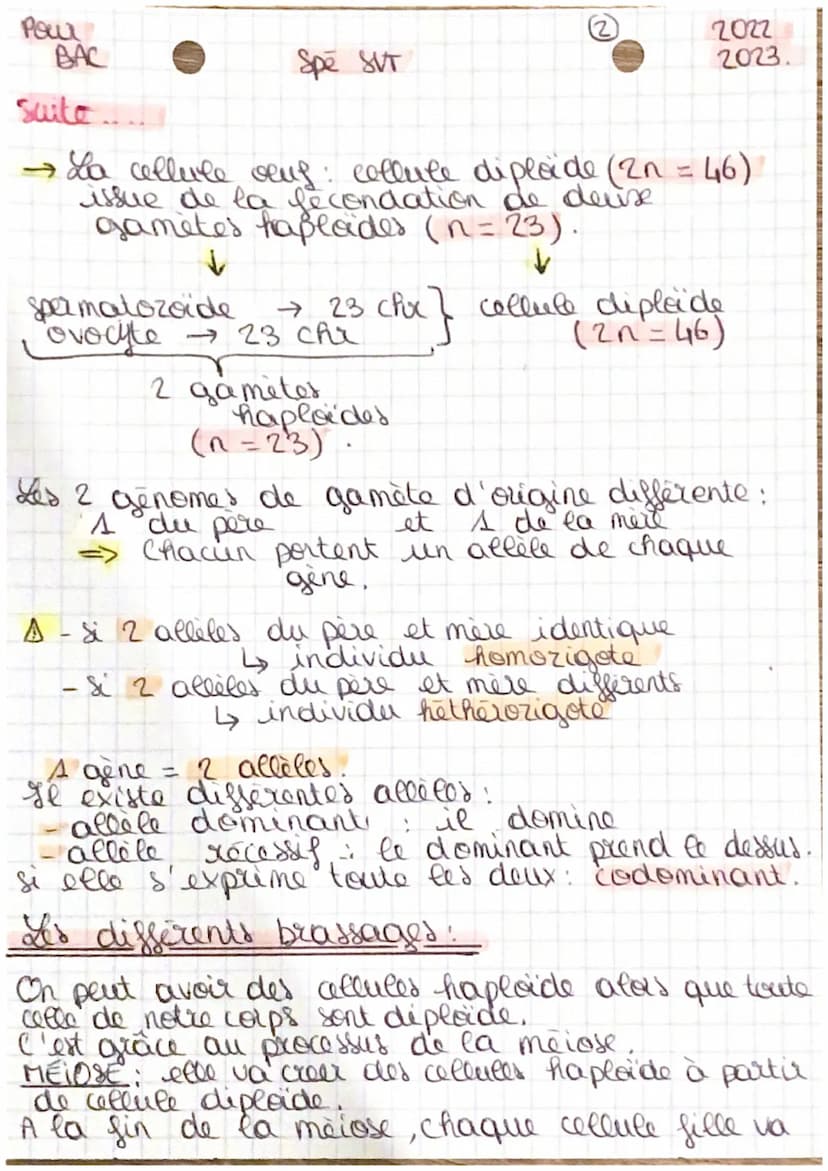 Pour
BAC
Spé SVT
2
2022
2023.
Suite....
→ La cellule oeuf : cellule diploïde (2n = 46)
issue de la fécondation de deux
gamètes haploïdes (n = 23).
↓ ↓
spermatozoïde → 23 chr } cellule diploïde
ovocyte → 23 chr (2n = 46)
2 gamètes
haploïdes
(n = 23).
Les 2 génomes de gamète d'origine différente :
1 du père et 1 de la mère
⇒ Chacun portent un allèle de chaque
gène.
⚠ - Si 2 allèles du père et mère identique
↳ individu homozigote
- Si 2 allèles du père et mère différents
↳ individu héthérozigote
1 gène = 2 allèles.
Il existe différentes allèles :
- allèle dominant : il domine
- allèle récessif : le dominant prend le dessus.
si elle s'exprime toute les deux : codominant.
Les différents brassages :
On peut avoir des cellules haploïde alors que toute
celle de notre corps sont diploïde.
C'est grâce au processus de la méiose.
MÉIOSE : elle va créer des cellules haploïde à partir
de cellule diploïde.
A la fin de la méiose, chaque cellule fille va